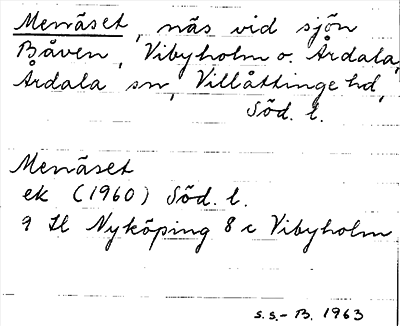 Mernäset, näs vid sjön
Båven, Vibyholm o. Årdala,
Årdala sn, Villåttinge hd,
Söd. l.
Mernäset
ek (1960) Söd. l.
9 H Nyköping 8 c Vibyholm
S.S. - B. 1963